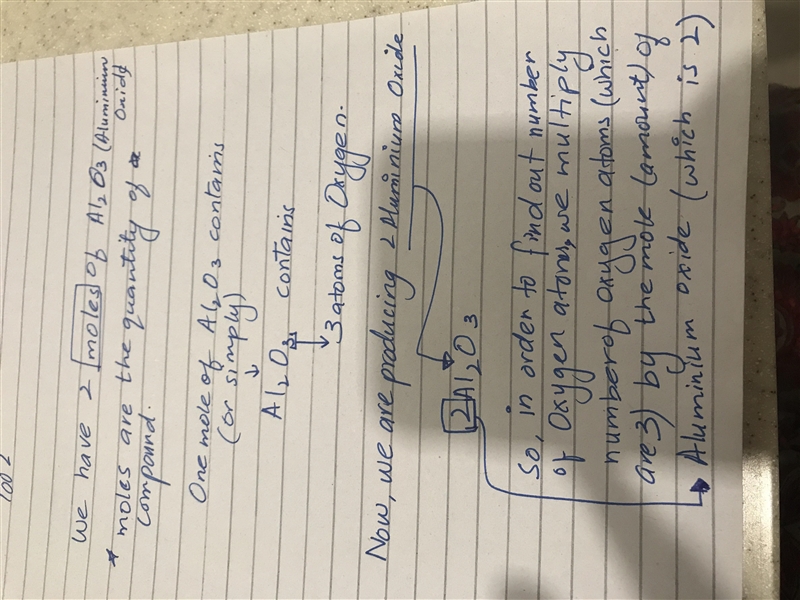 We have 2 moles of Al2O3 (Aluminium
Oxide
* moles are the quantity of a
compound.
One mole of Al2O3 contains
(or simply)
Al2O3 contains
3 atoms of Oxygen.
Now, we are producing 2 Aluminium Oxide
2Al2O3
So, in order to find out number
of Oxygen atoms, we multiply
number of oxygen atoms (which
are 3) by the mole (amount) of
Aluminium oxide (which is 2)